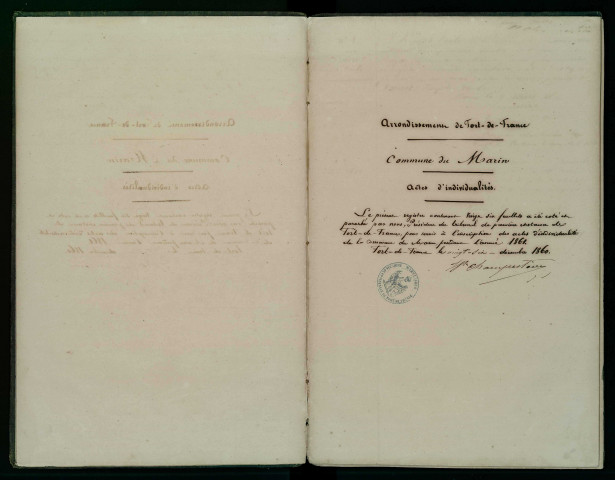 Arrondissement de Fort-de-France
Commune du Marin
Actes d'individualités.
Le présent registre contenant seize feuillets a été coté et
paraphé par nous, Président du tribunal de première instance de
Fort-de-France pour servir à l'inscription des actes d'individualité
de la commune du Marin pendant l'année 1861.
Fort-de-France le vingt décembre 1860.